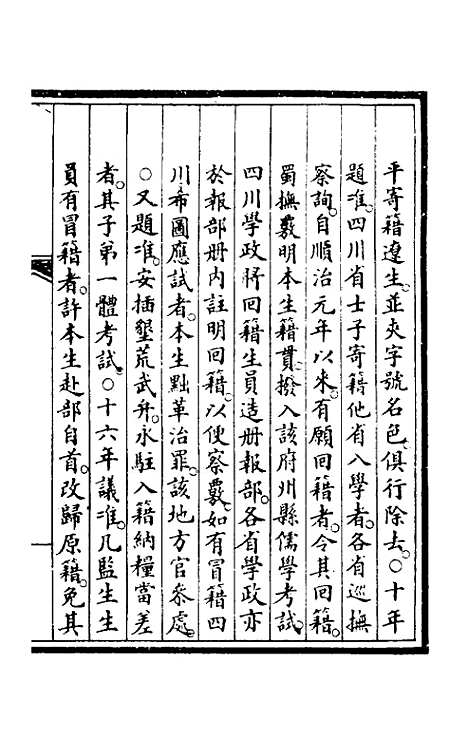 平寄籍遼生。並夾字號名色。俱行除去。○十年
題准。四川省士子寄籍他省入學者。各省巡撫
察詢。自順治元年以來。有願回籍者。令其回籍。
蜀撫覈明本生籍貫。撥入該府州縣儒學考試。
四川學政將回籍生員造册報部。各省學政亦
於報部册內註明回籍。以便察覈。如有冒籍四
川希圖應試者。本生黜革治罪。該地方官叅處。
○又題准。安插墾荒武弁。永駐入籍納糧當差
者。其子弟一體考試。○十六年議准。凡監生生
員有冒籍者。許本生赴部自首。改歸原籍。免其